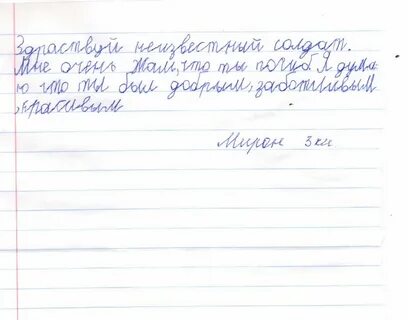 Здраствуй неизвестный солдат.
Мне очень жал, что ты погиб. Я дума-
ю что ты был добрым, заботливым
, красивым
Мирон 3 кл